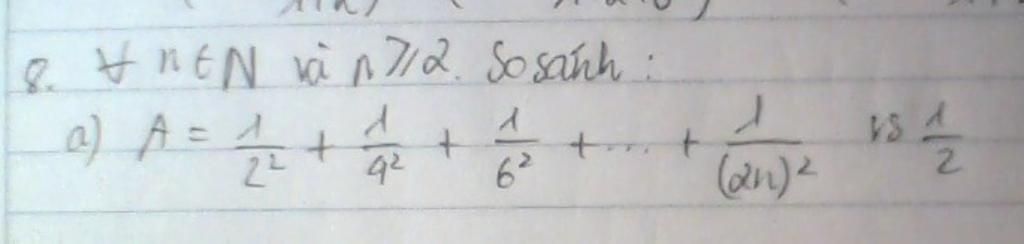 8. ∀ n ∈ N và n ≥ 2. So sánh :
a) A = 1/2² + 1/4² + 1/6² + ... + 1/(2n)² vs 1/2